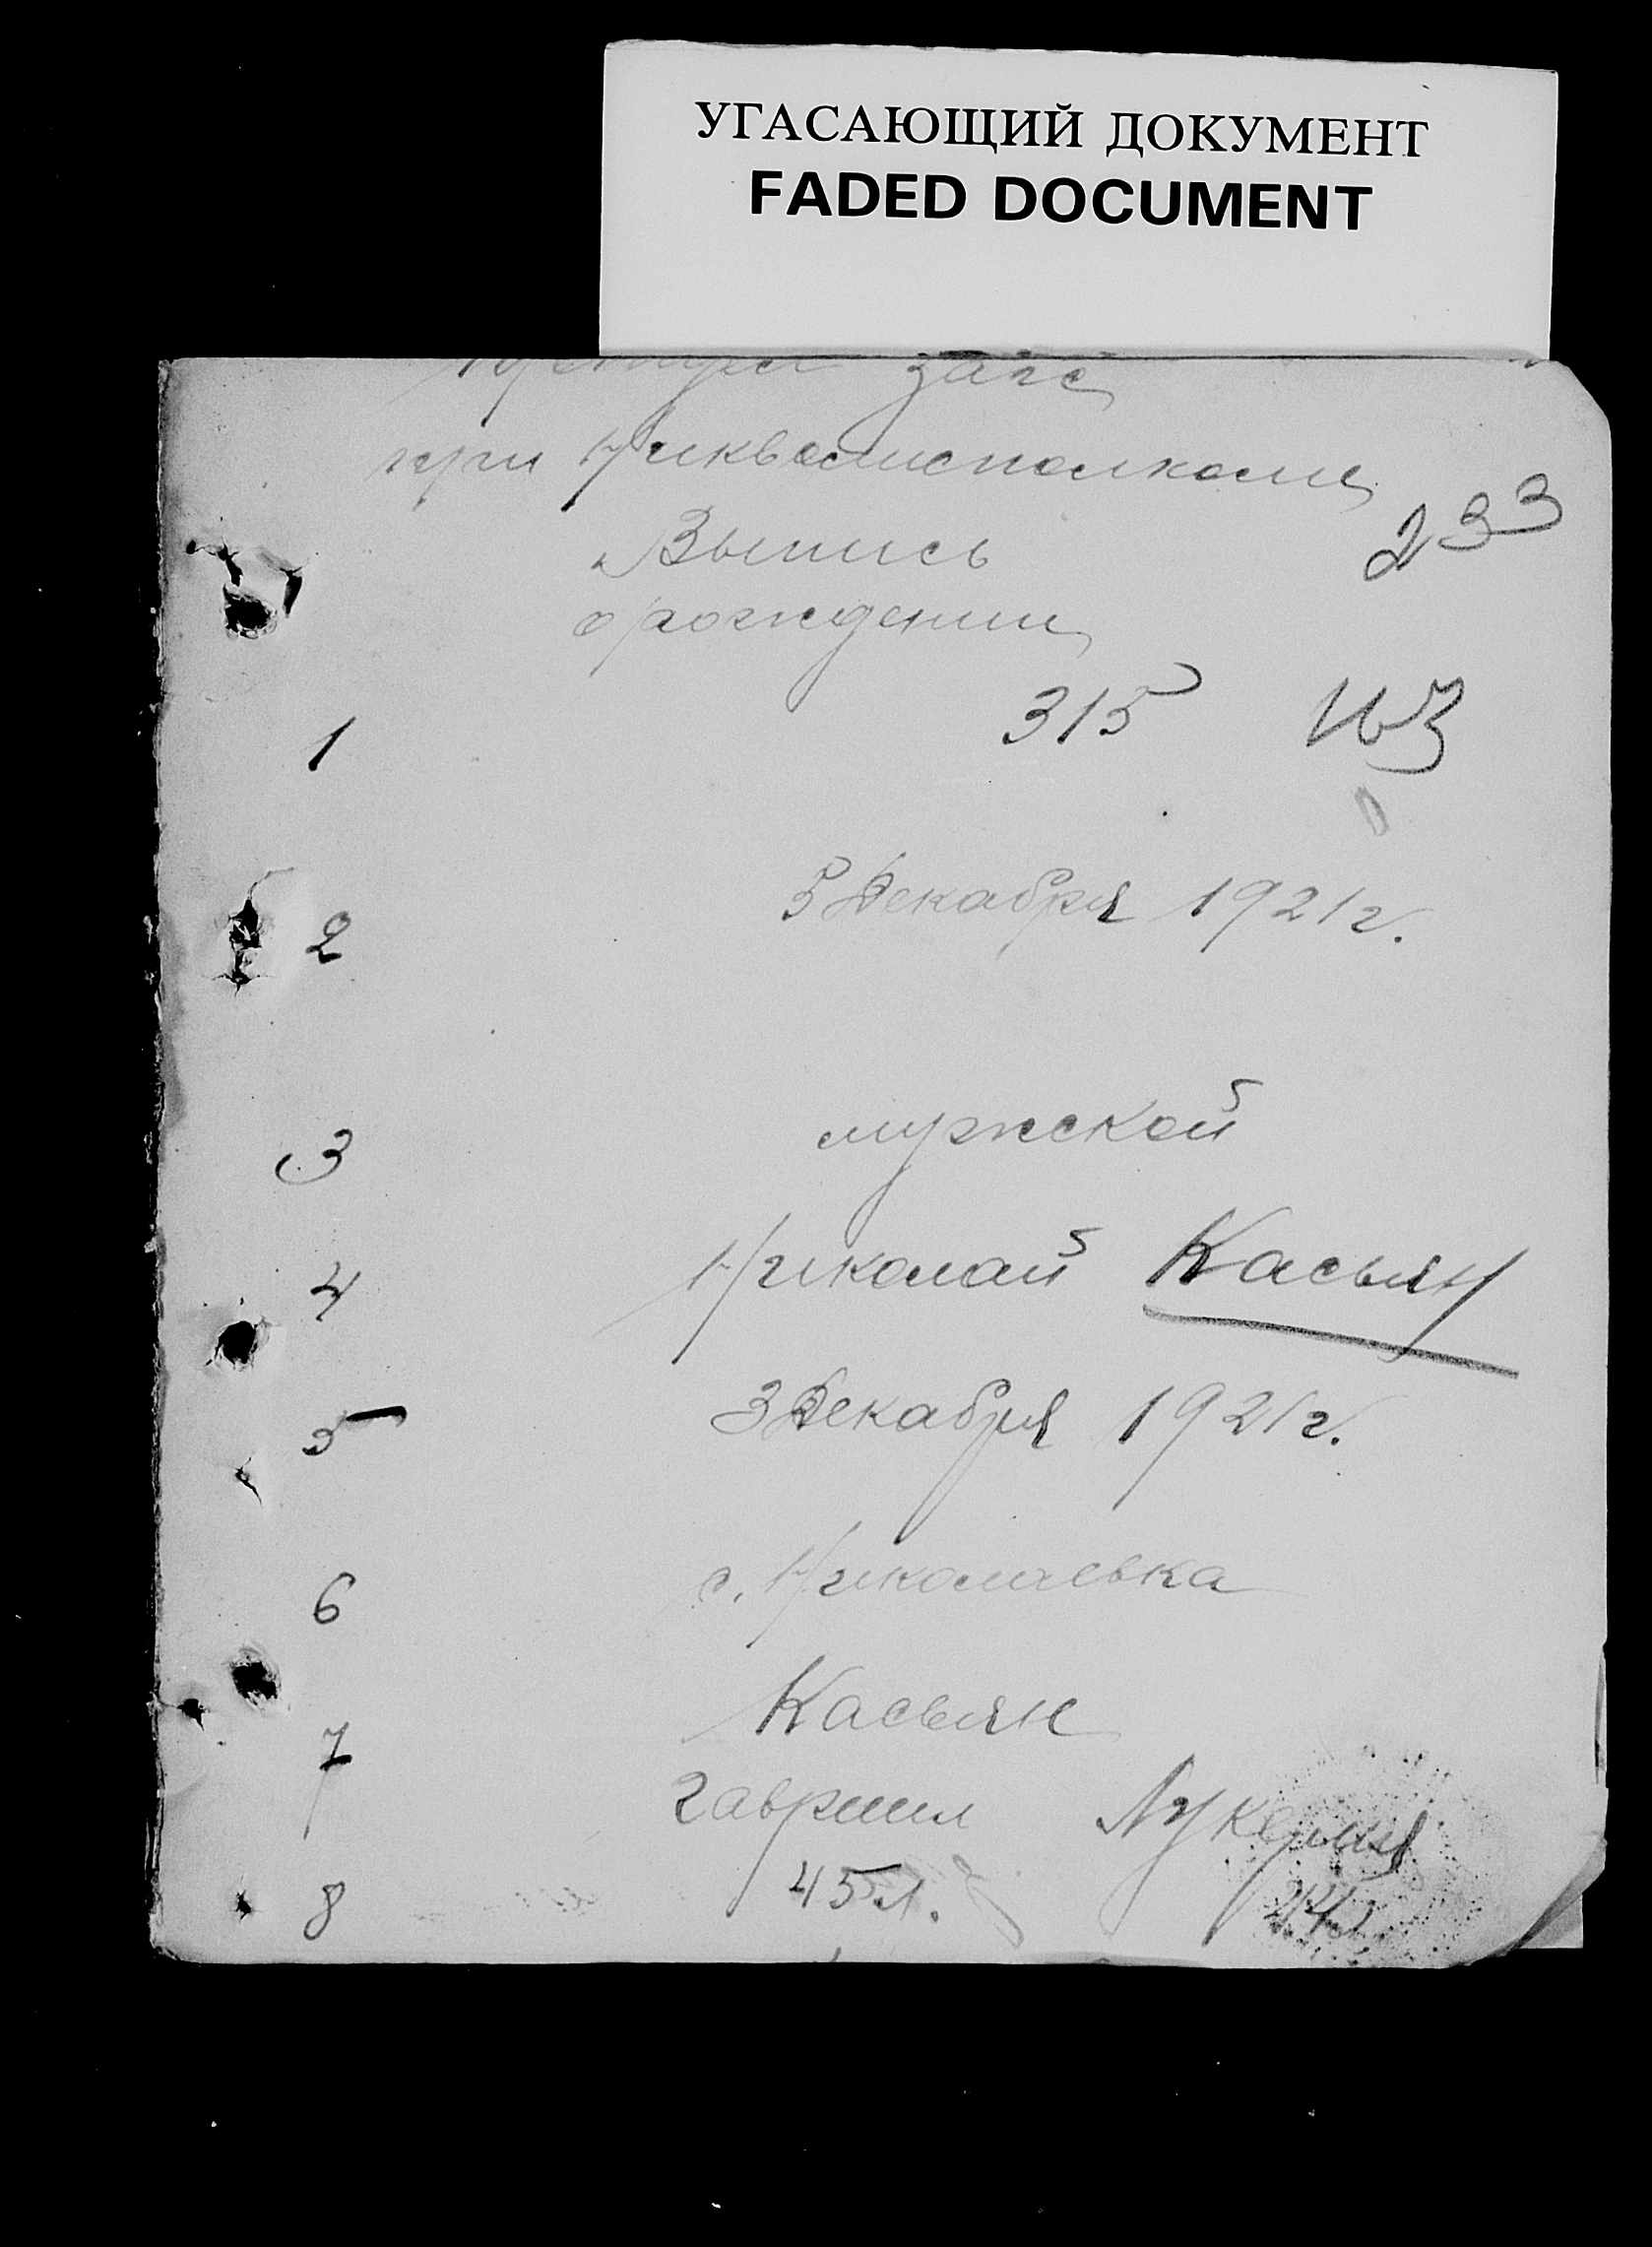 УГАСАЮЩИЙ ДОКУМЕНТ
FADED DOCUMENT
загс
при Никволисполкоме
233
Выпись
о рождении
1 315
2 5 Декабря 1921 г.
3 мужской
4 Николай Касьян
5 3 Декабря 1921 г.
6 с. Николаевка
7 Касьян
Гавриил Лукерия
8 45 л.